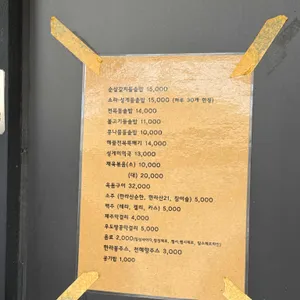 순살갈치돌솥밥 15,000
소라·성게돌솥밥 15,000 (하루 30개 한정)
전복돌솥밥 14,000
불고기돌솥밥 11,000
콩나물돌솥밥 10,000
해물전복뚝배기 14,000
성게미역국 13,000
제육볶음(소) 10,000
(대) 20,000
옥돔구이 32,000
소주 (한라산순한, 한라산21, 참이슬) 5,000
맥주 (테라, 켈리, 카스) 5,000
제주막걸리 4,000
우도땅콩막걸리 5,000
음료 2,000
한라봉주스, 천혜향주스 3,000
공기밥 1,000